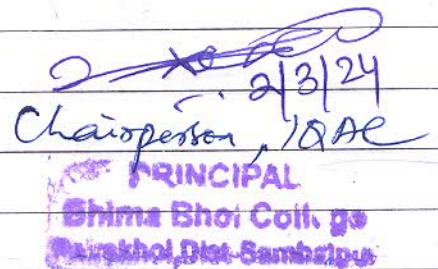 2/3/24
Chairperson, IQAC
PRINCIPAL
Bhima Bhoi College
Rairakhol, Dist-Sambalpur